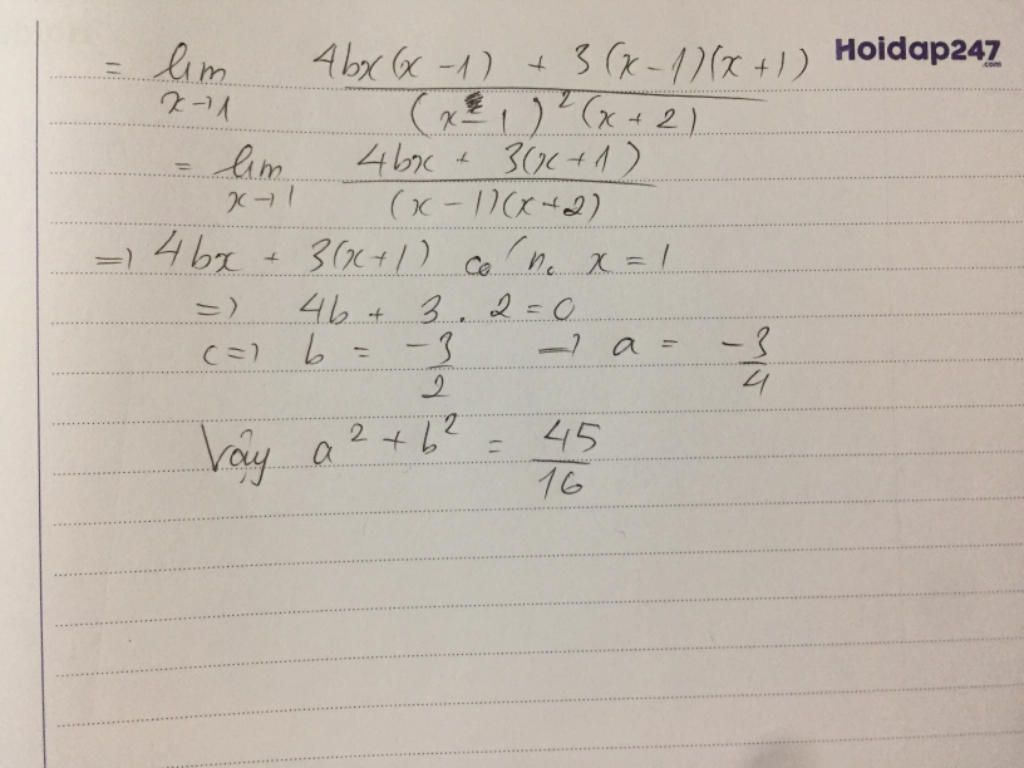 = lim x→1 4bx(x - 1) + 3(x - 1)(x + 1) / (x - 1)²(x + 2)
Hoidap247.com
= lim x→1 4bx + 3(x + 1) / (x - 1)(x + 2)
=> 4bx + 3(x + 1) có n. x = 1
=> 4b + 3 . 2 = 0
<=> b = -3/2 => a = -3/4
Vậy a² + b² = 45/16